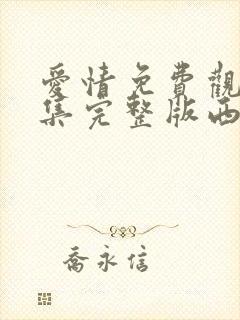 愛情免費觀
集完整版西
喬永信